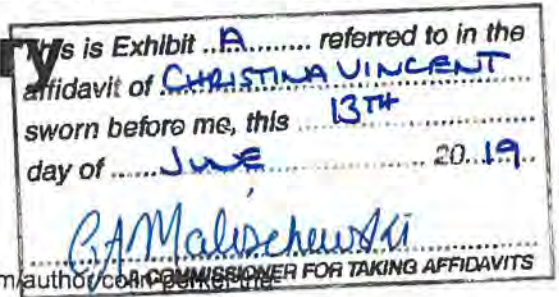 ry
This is Exhibit ..A......... referred to in the
affidavit of CHRISTINA VINCENT
sworn before me, this 13TH
day of ......JUNE.................... 20..19..
GAMalischewski
A COMMISSIONER FOR TAKING AFFIDAVITS
m/author/colin-perkel-the-